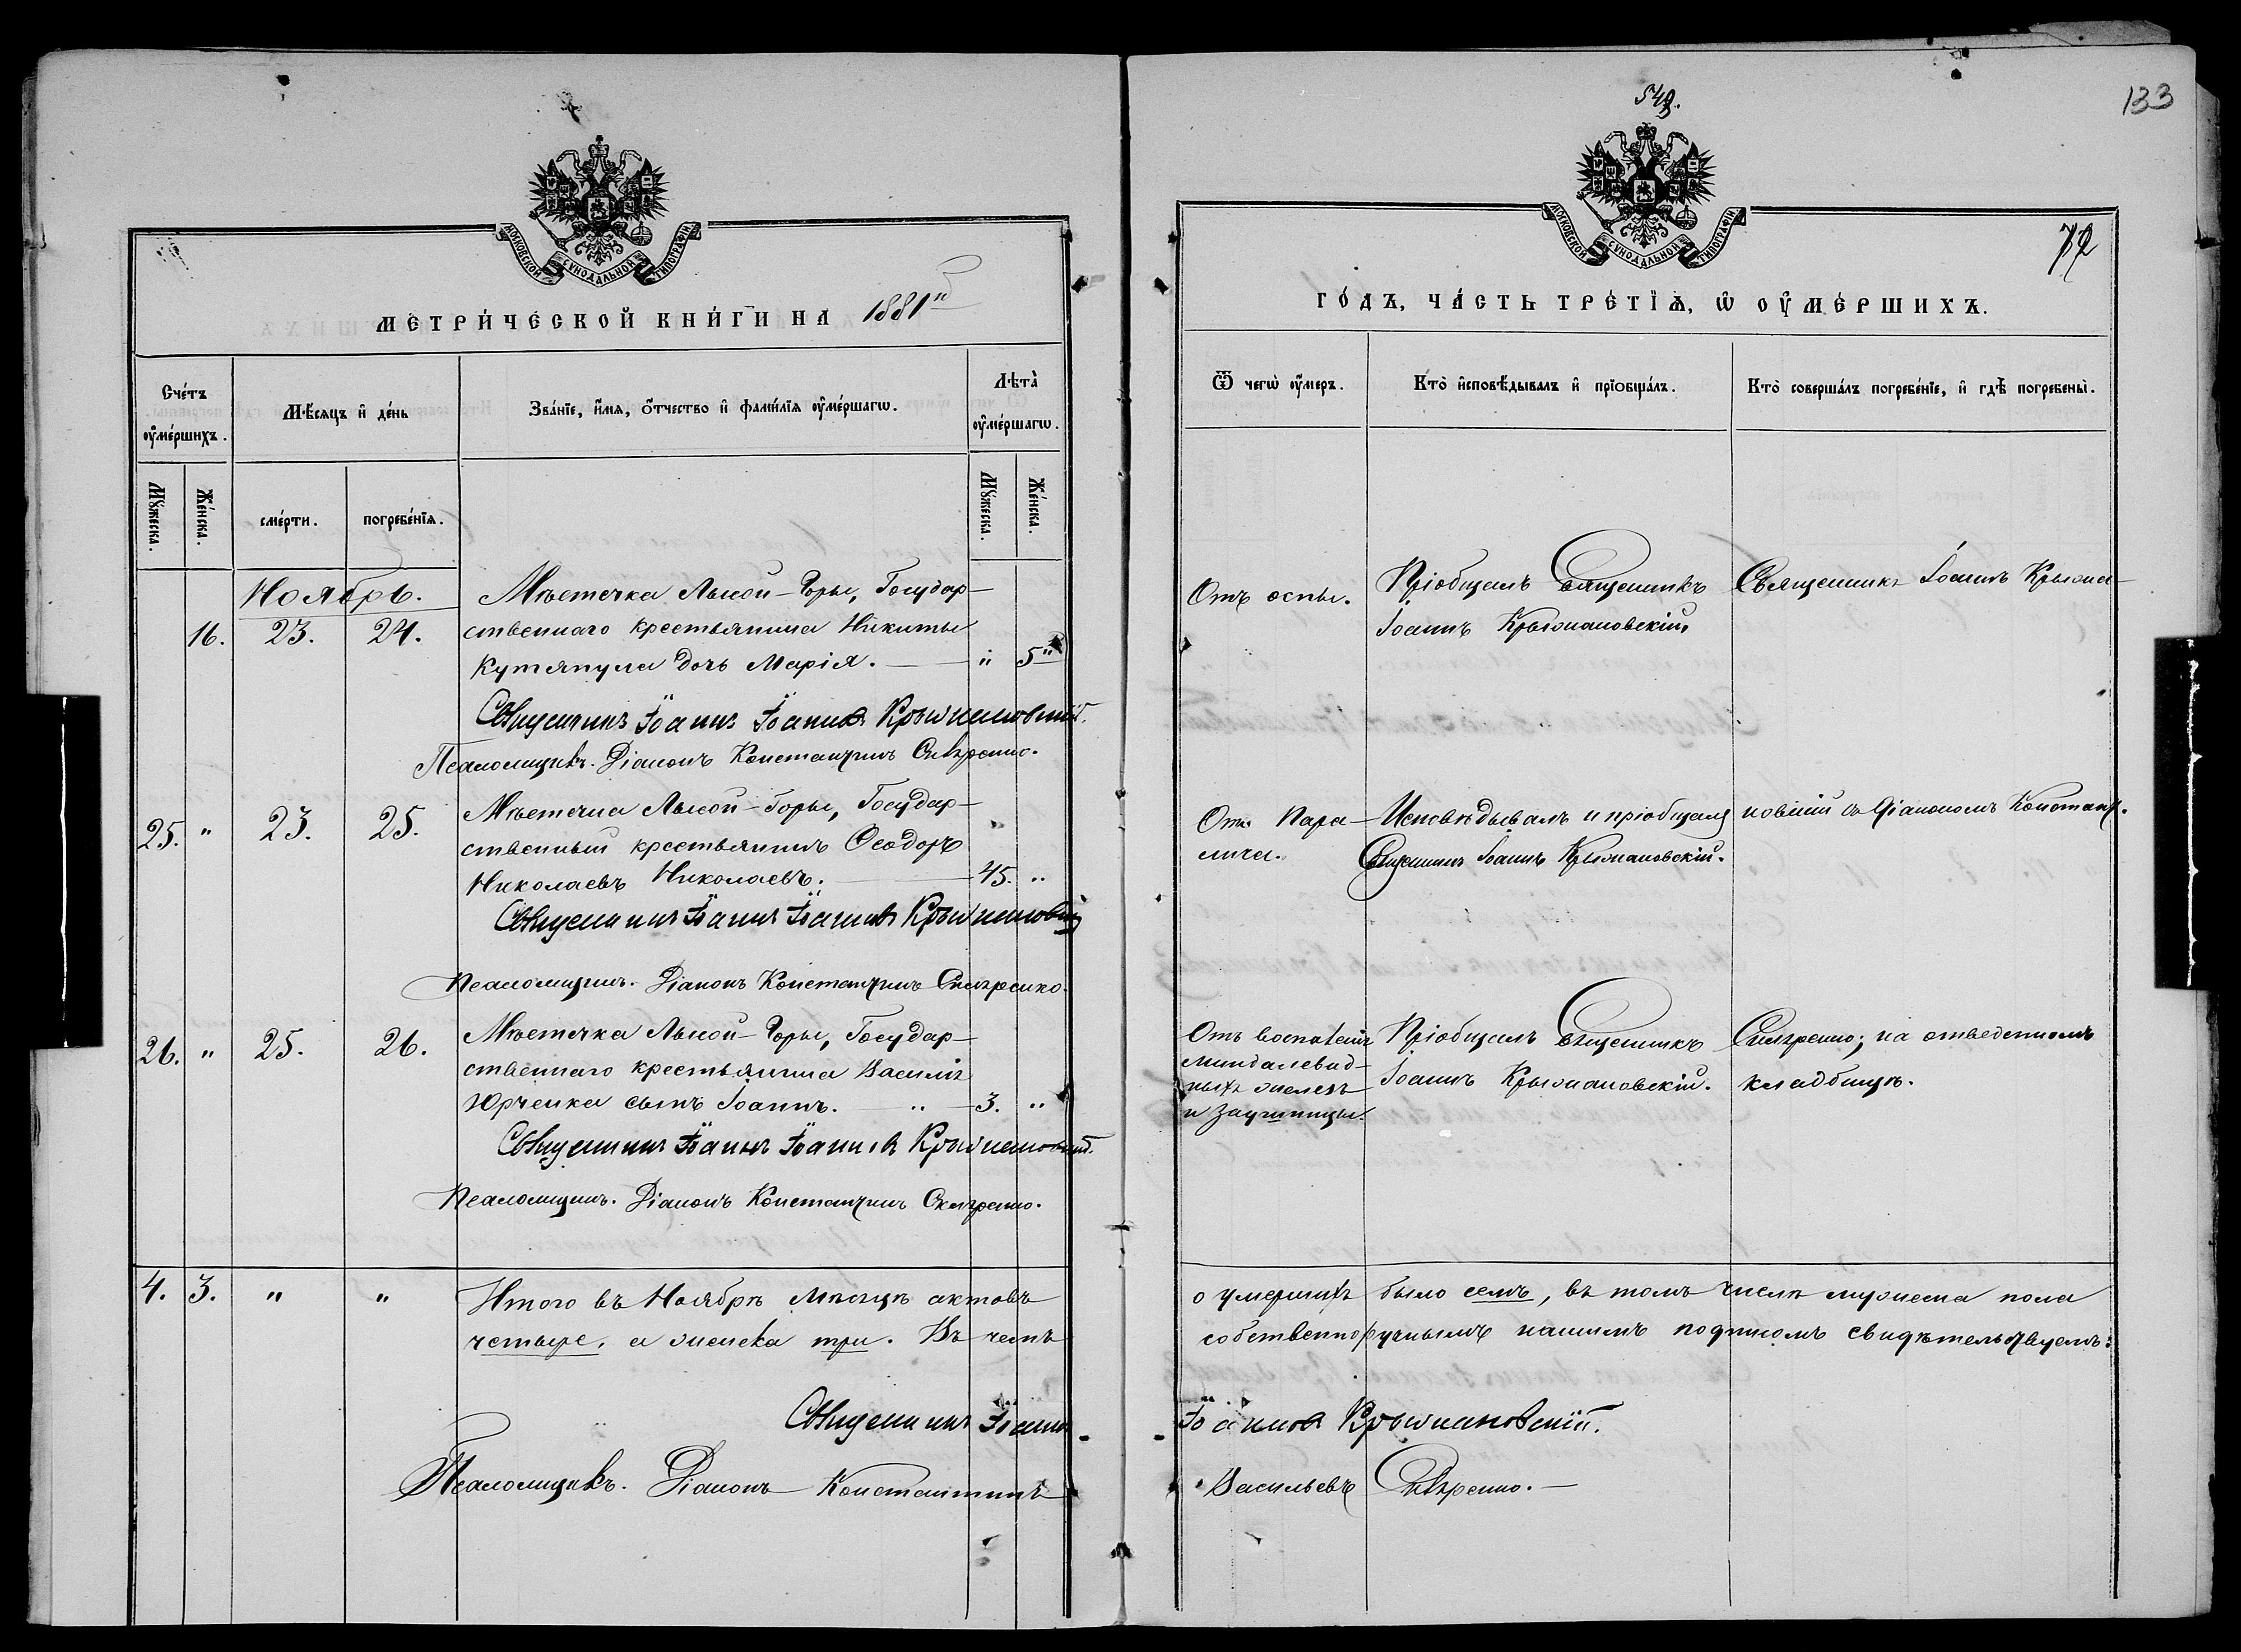 543.
133
МОСКОВСКОЙ СУНОДАЛЬНОЙ ТИПОГРАФІИ
МЕТРИ́ЧЕСКОЙ КНИ́ГИ НА 1881й
Сче́тъ ᲂу҆ме́ршихъ.
Мѣ́сяцъ и҆ де́нь
Зва́нїе, и҆́мѧ, ѻ҆́тчество и҆ фамі́лїѧ ᲂу҆ме́ршагѡ.
Лѣта̀ ᲂу҆ме́ршагѡ.
Мꙋ́жеска.
Же́нска.
сме́рти.
погребе́нїѧ.
Мꙋ́жеска.
Же́нска.
Ноябрь.
16. 23. 24.
Мѣстечка Лысой-Горы, Государ-
ственнаго крестьянина Никиты
Кутяпула дочь Марія. — " 5"
Священникъ Іоаннъ Іоанновъ Крыжановскій.
Псаломщикъ. Діаконъ Константинъ
25. " 23. 25.
Мѣстечка Лысой-Горы, Государ-
ственный крестьянинъ Ѳеодоръ
Николаевъ Николаевъ. — 45. "
Священникъ Іоаннъ Іоанновъ Крыжановскій
Псаломщикъ. Діаконъ Константинъ
26. " 25. 26.
Мѣстечка Лысой-Горы, Государ-
ственнаго крестьянина Василія
Юрченка сынъ Іоаннъ. " — 3. "
Священникъ Іоаннъ Іоанновъ Крыжановскій.
Псаломщикъ. Діаконъ Константинъ
4. 3. " "
Итого въ Ноябрѣ мѣсяцѣ актовъ
четыре, а женска три. Въ чемъ
Священникъ Іоаннъ
Псаломщикъ. Діаконъ Константинъ
МОСКОВСКОЙ СУНОДАЛЬНОЙ ТИПОГРАФІИ
72
ГО́ДЪ, ЧА́СТЬ ТРЕ́ТЇѦ, Ѡ҆ ОУ҆МЕ́РШИХЪ.
Ѿ чегѡ̀ ᲂу҆́меръ.
Кто̀ и҆сповѣ́дывалъ и҆ прїѡбща́лъ.
Кто̀ соверша́лъ погребе́нїе, и҆ гдѣ̀ погребены̀.
Отъ оспы.
Пріобщалъ Священникъ
Іоаннъ Крыжановскій.
Священникъ Іоаннъ Крыжа-
Отъ Пара-
лича.
Исповѣдывалъ и пріобщалъ
Священникъ Іоаннъ Крыжановскій.
новскій съ Діакономъ Констант.
Отъ воспаленія
миндалевид-
ныхъ железъ
и заушницы.
Пріобщалъ Священникъ
Іоаннъ Крыжановскій.
на отведенномъ
кладбищѣ.
о умершихъ было семь, въ томъ числѣ мужеска пола
собственноручнымъ нашимъ подписомъ свидѣтельствуемъ:
Іоанновъ Крыжановскій.
Васильевъ